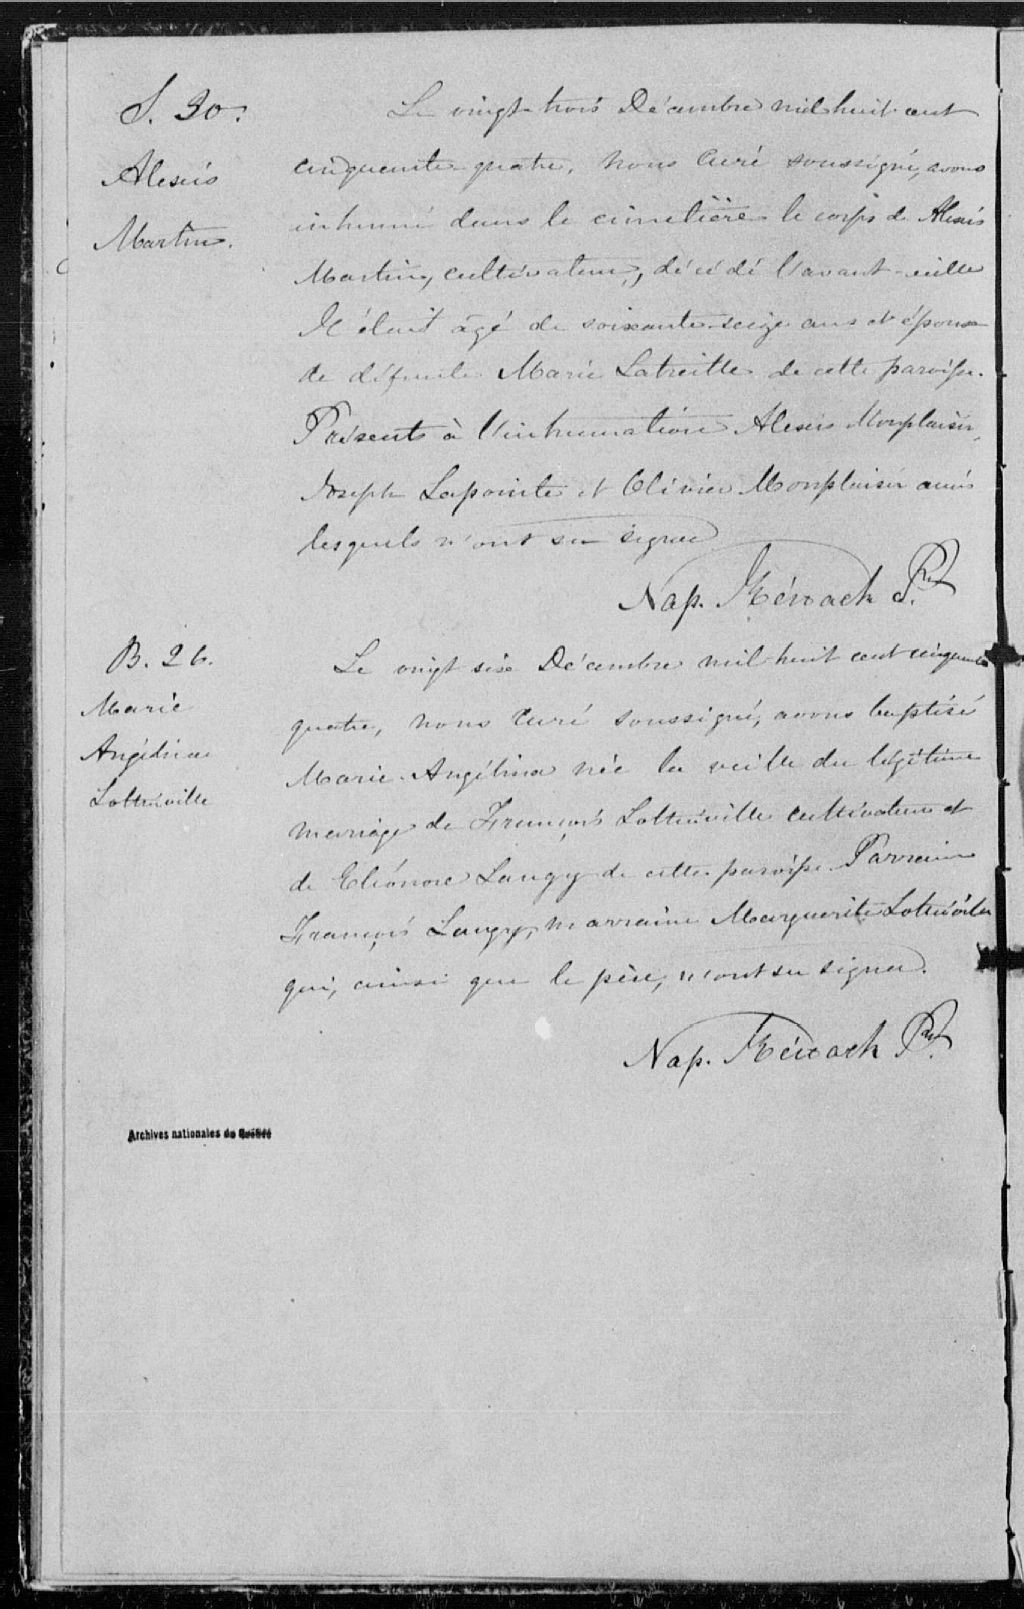 S. 30.
Alexis
Martin.
Le vingt-trois Décembre mil huit cent
cinquante quatre, nous Curé soussigné, avons
inhumé dans le cimetière le corps de Alexis
Martin, cultivateur, décédé l'avant-veille
Il était âgé de soixante-seize ans et époux
de défunte Marie Latreille de cette paroisse.
Présents à l'inhumation Alexis Monplaisir,
Joseph Lapointe et Olivier Monplaisir amis
lesquels n'ont su signer
Nap. Kéroack Ptre
B. 26.
Marie
Angélina
Lottinville
Le vingt six Décembre mil huit cent cinquante
quatre, nous Curé soussigné, avons baptisé
Marie-Angélina née la veille du légitime
mariage de François Lottinville cultivateur et
de Eléonore Laugy de cette paroisse. Parrain
François Laugy, marraine Marguerite Lotinville
qui, ainsi que le père, n'ont su signer.
Nap. Kéroack Ptre
Archives nationales du Québec